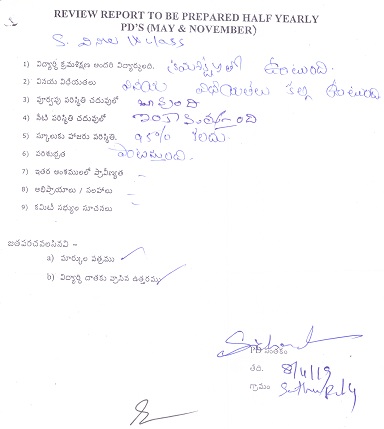 REVIEW REPORT TO BE PREPARED HALF YEARLY
PD'S (MAY & NOVEMBER)
S. వినీల IX class
1) విద్యార్థి క్రమశిక్షణ అందరి విద్యార్థులది. క్రమశిక్షణతో ఉంటుంది.
2) వినయ విధేయతలు వినయ విధేయతలు కల్గి ఉంటుంది
3) పూర్వపు పరిస్థితి చదువులో బాగుంది
4) నేటి పరిస్థితి చదువులో
5) స్కూలుకు హాజరు పరిస్థితి. 95% కలదు.
6) పరిశుభ్రత పాటిస్తుంది.
7) ఇతర అంశములలో ప్రావీణ్యత –
8) అభిప్రాయాలు / సలహాలు –
9) కమిటీ సభ్యుల సూచనలు
జతపరచవలసినవి –
a) మార్కుల పత్రము ✓
b) విద్యార్థి దాతకు వ్రాసిన ఉత్తరము ✓
PD సంతకం
తేది.
గ్రామం